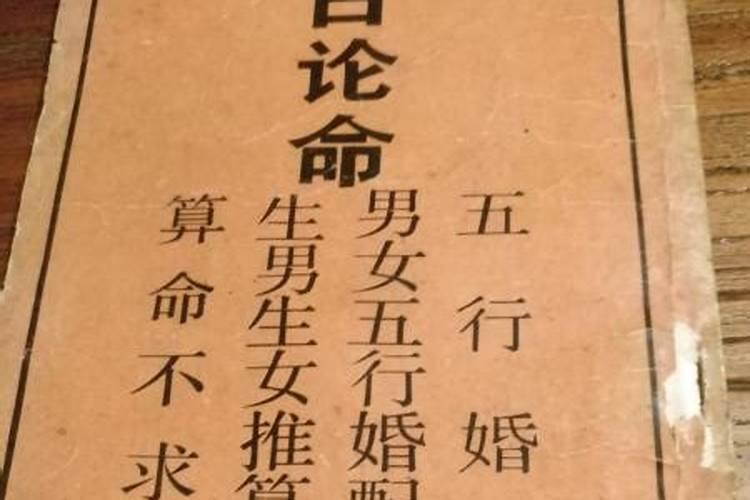 论命
五行婚
男女五行婚配
生男生女推算
算命不求